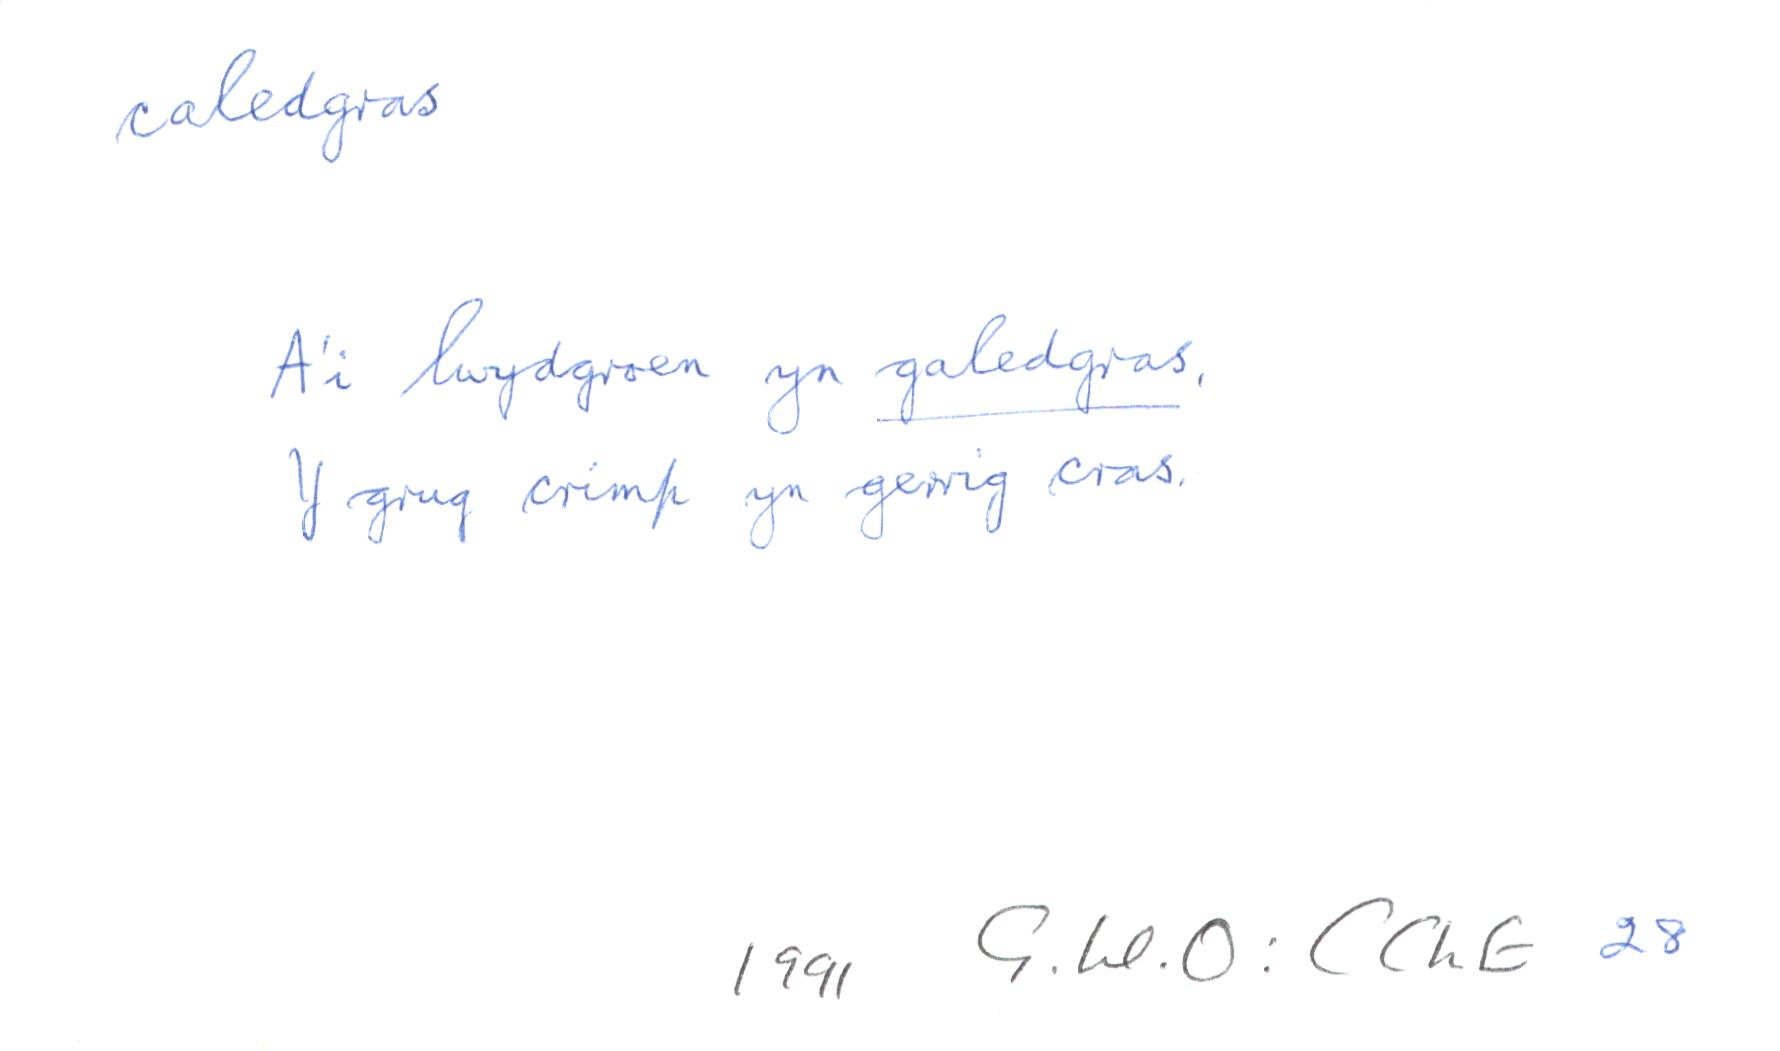 caledgras
A'i lwydgroen yn galedgras,
Y grug crimp yn gerrig cras.
1991 G.Ll.O: CChE 28